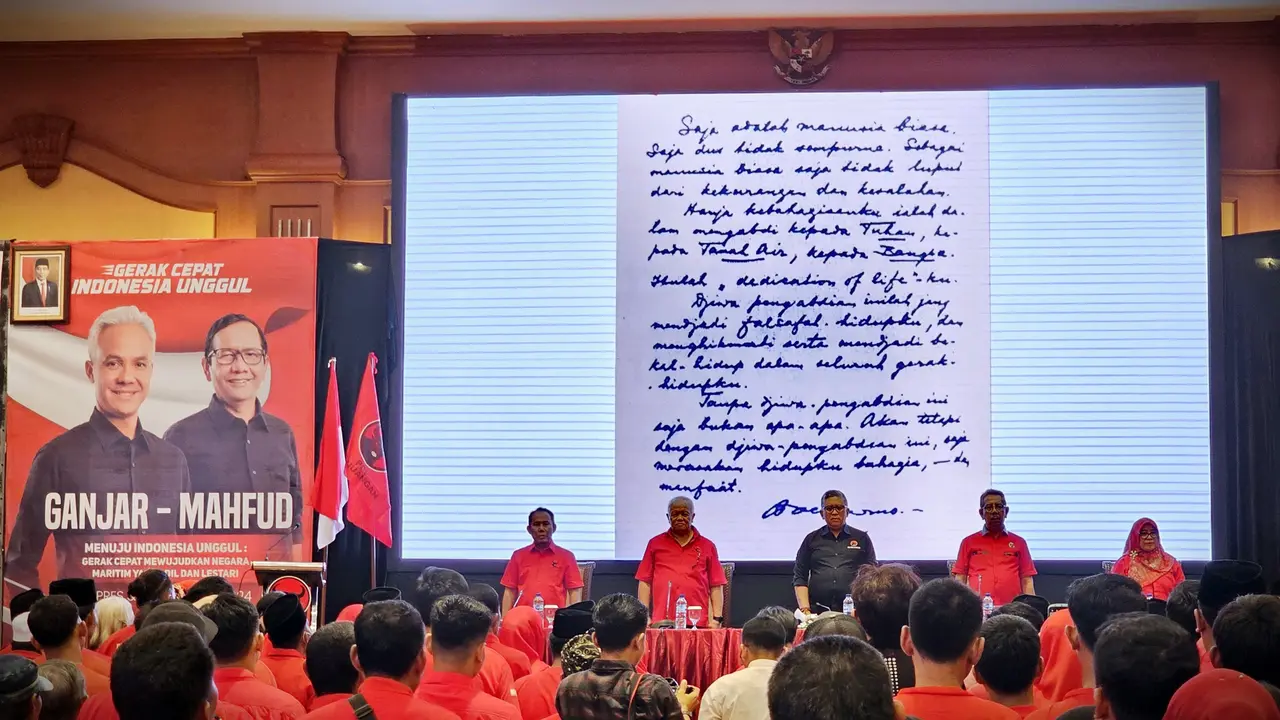 Saja adalah manusia biasa.
Saja dus tidak sempurna. Sebagai
manusia biasa saja tidak luput
dari kekurangan dan kesalahan.
Hanja kebahagiaanku ialah da-
lam mengabdi kepada Tuhan, ke-
pada Tanah Air, kepada Bangsa.
Itulah „dedication of life"-ku.
Djiwa pengabdian inilah jang
mendjadi falsafah hidupku, dan
menghikmati serta mendjadi be-
kal-hidup dalam seluruh gerak-
hidupku.
Tanpa djiwa-pengabdian ini
saja bukan apa-apa. Akan tetapi
dengan djiwa-pengabdian ini, saja
merasakan hidupku bahagia, – dan
manfaat.
GERAK CEPAT
INDONESIA UNGGUL
GANJAR - MAHFUD
MENUJU INDONESIA UNGGUL :
GERAK CEPAT MEWUJUDKAN NEGARA
MARITIM YANG ADIL DAN LESTARI